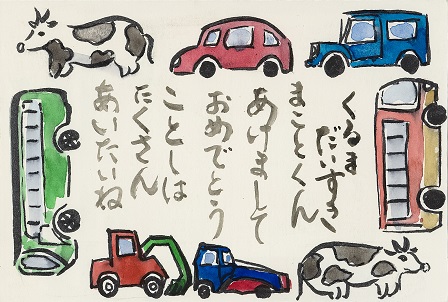 くるま
だいすき
まことくん
あけまして
おめでとう
ことしは
たくさん
あいたいね